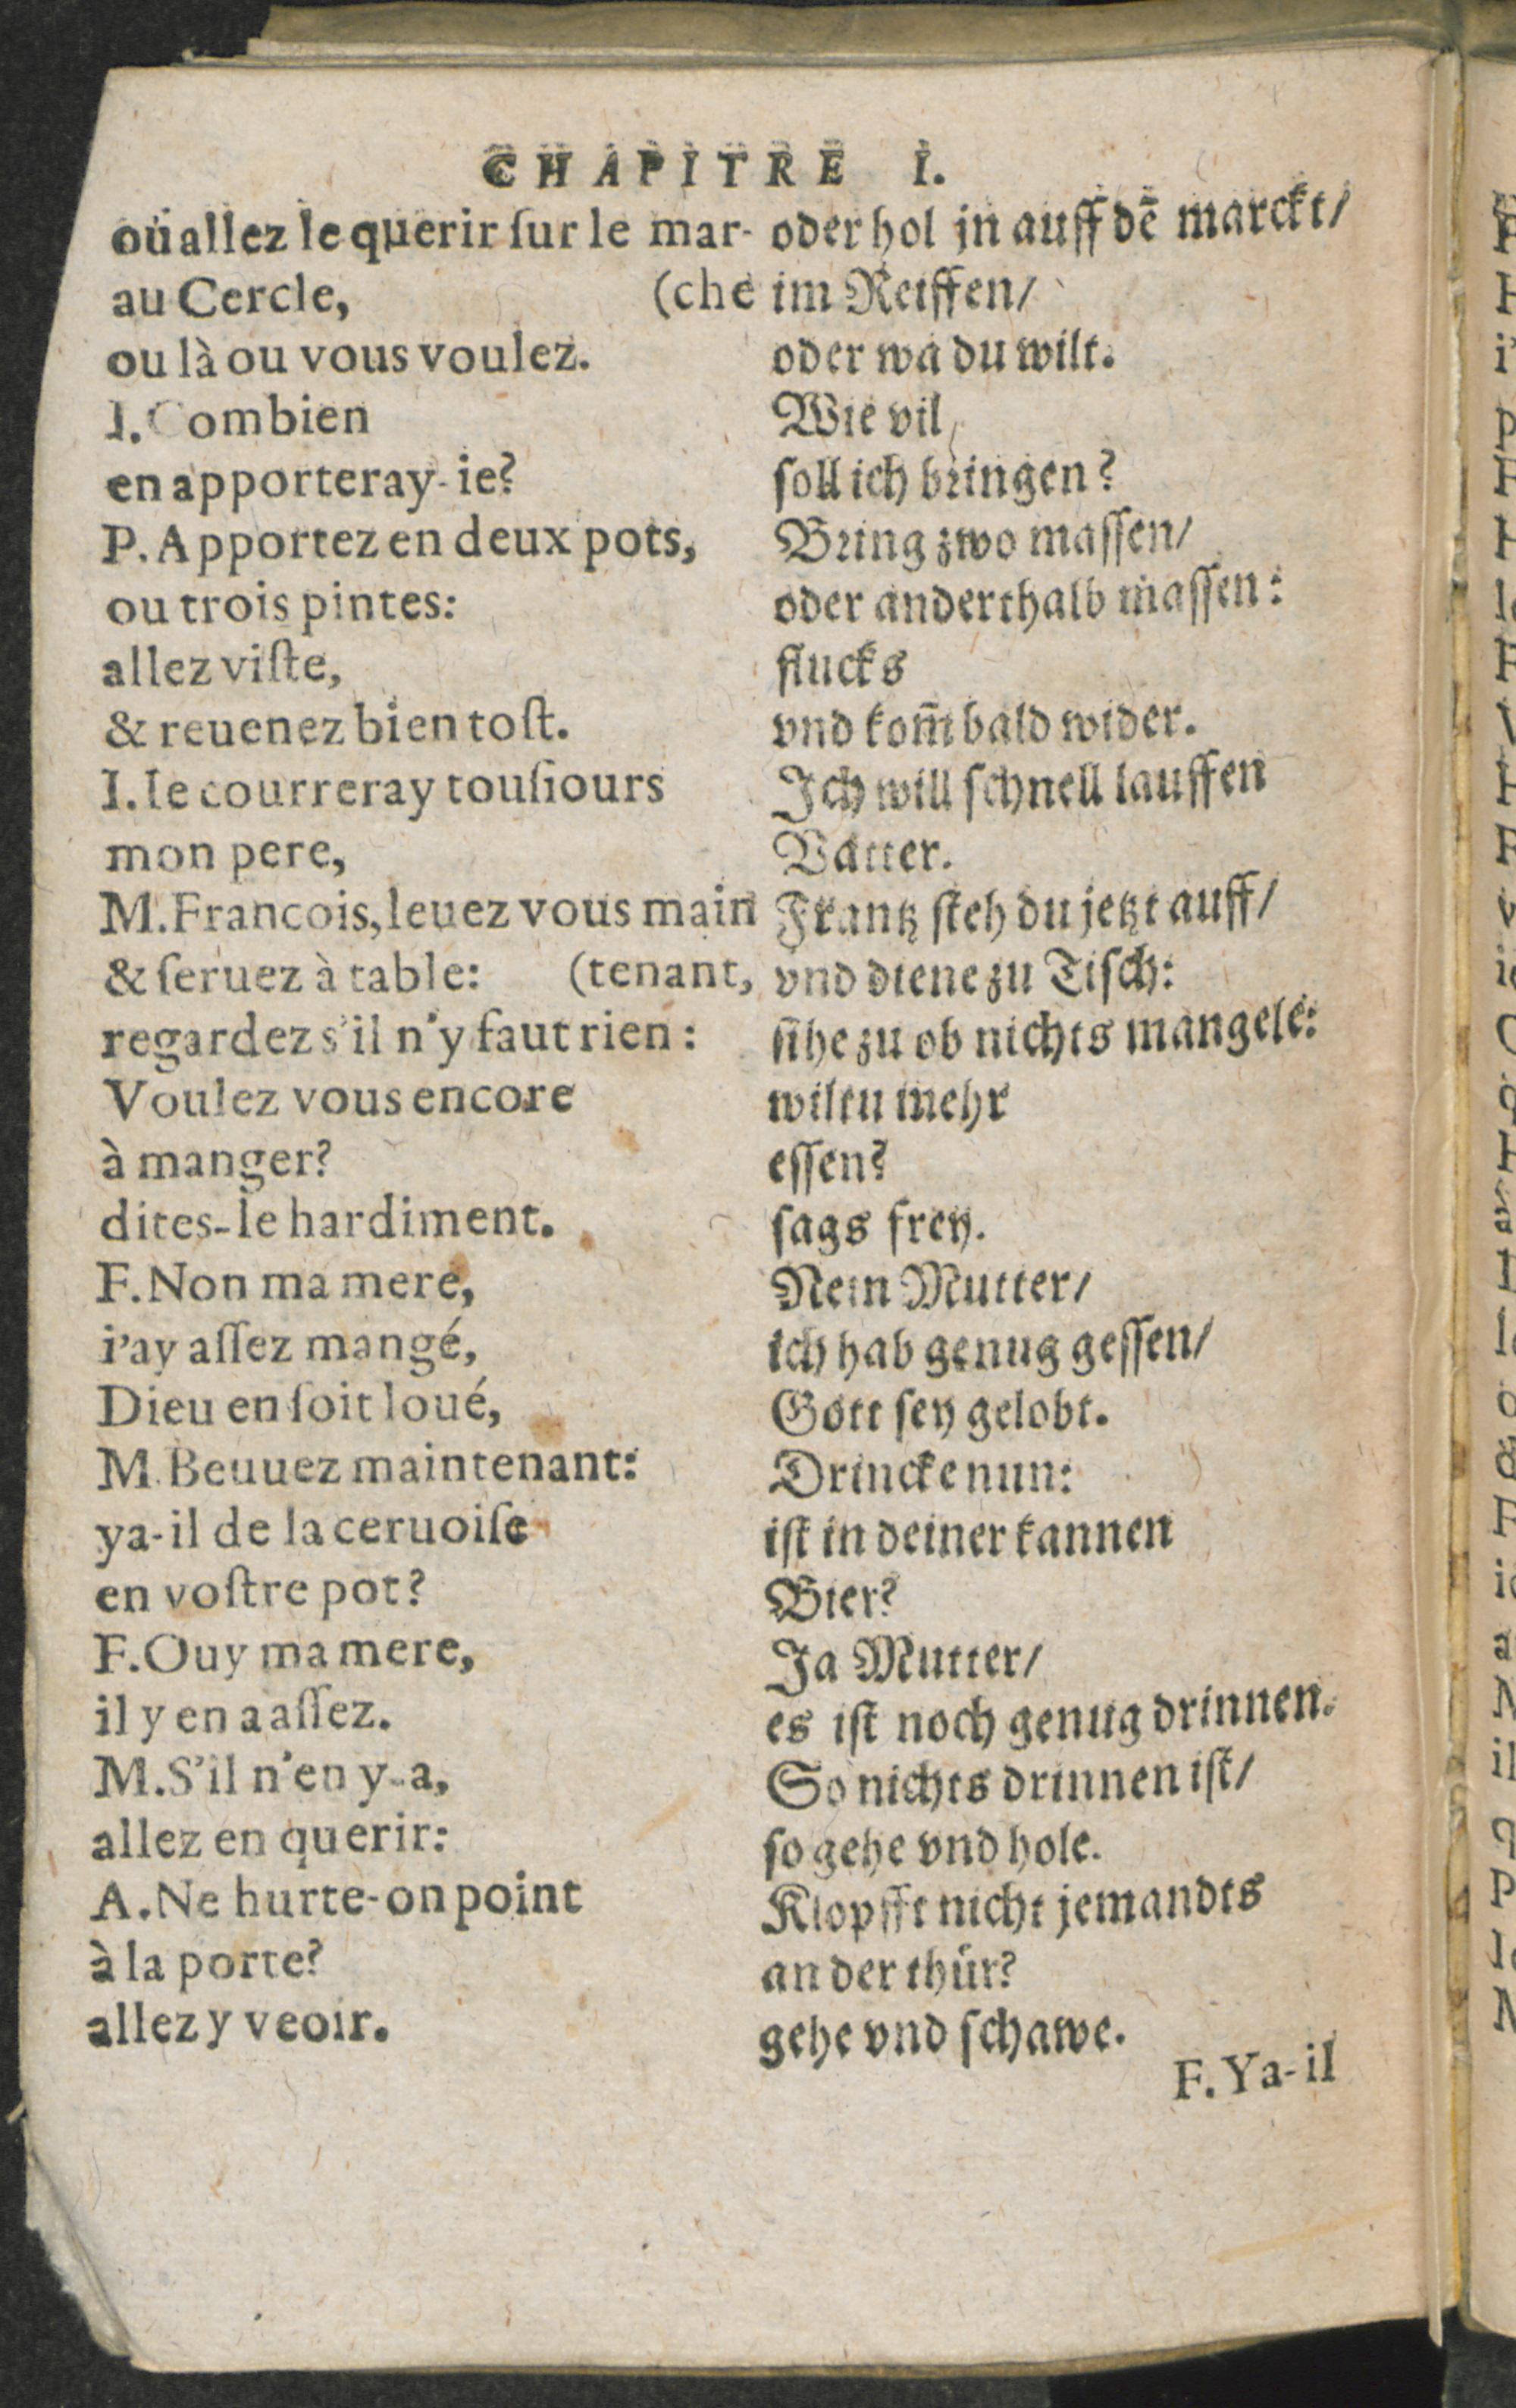 CHAPITRE I.
ou allez le querir ſur le mar-
au Cercle, (che
ou là ou vous voulez.
I. Combien
en apporteray-ie?
P. Apportez en deux pots,
ou trois pintes:
allez viſte,
& reuenez bien toſt.
I. Ie courreray touſiours
mon pere,
M. Francois, leuez vous main
& ſeruez à table: (tenant,
regardez s'il n'y faut rien:
Voulez vous encore
à manger?
dites-le hardiment.
F. Non ma mere,
i'ay aſſez mangé,
Dieu en ſoit loué,
M. Beuuez maintenant:
ya-il de la ceruoiſe
en voſtre pot?
F. Ouy ma mere,
il y en a aſſez.
M. S'il n'en y-a,
allez en querir:
A. Ne hurte-on point
à la porte?
allez y veoir.
oder hol jn auff dē marckt/
im Reiffen/
oder wa du wilt.
Wie vil
ſoll ich bringen?
Bring zwo maſſen/
oder anderthalb maſſen:
flucks
vnd kom̄ bald wider.
Ich will ſchnell lauffen
Vatter.
Frantz ſteh du jetzt auff/
vnd diene zu Tiſch:
ſihe zu ob nichts mangele:
wiltu mehr
eſſen?
ſags frey.
Nein Mutter/
ich hab genug geſſen/
Gott ſey gelobt.
Drincke nun:
iſt in deiner kannen
Bier?
Ja Mutter/
es iſt noch genug drinnen.
So nichts drinnen iſt/
ſo gehe vnd hole.
Klopfft nicht jemandts
an der thür?
gehe vnd ſchawe.
F. Ya-il